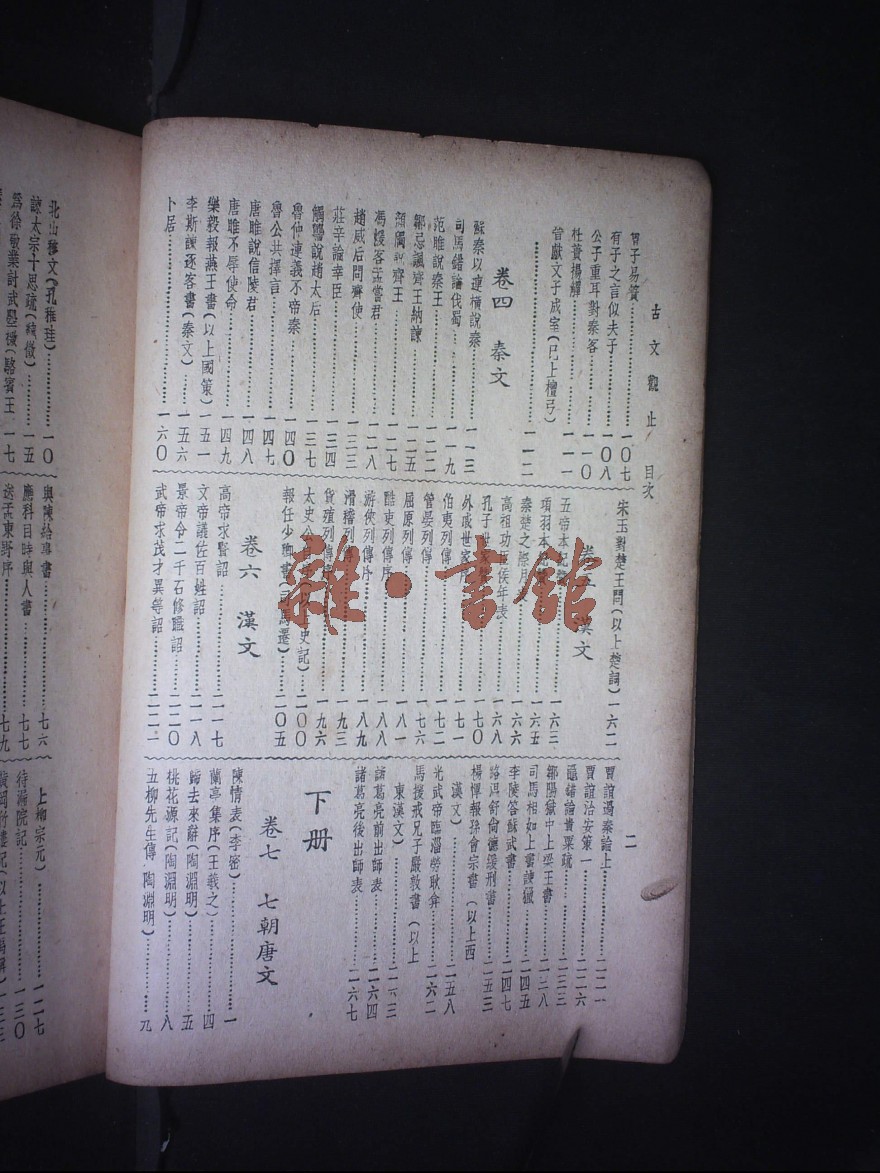 古文觀止 目次
二
曾子易簀 一〇七
有子之言似夫子 一〇八
公子重耳對秦客 一一〇
杜蕢揚觶 一一一
晉獻文子成室(已上檀弓)
一一二
卷四 秦文
蘇秦以連橫說秦 一一三
司馬錯論伐蜀 一一九
范雎說秦王 一二二
鄒忌諷齊王納諫 一二五
顏斶說齊王 一二七
馮煖客孟嘗君 一二八
趙威后問齊使 一三三
莊辛論幸臣 一三四
觸讋說趙太后 一三七
魯仲連義不帝秦 一四〇
魯公共擇言 一四七
唐雎說信陵君 一四八
唐雎不辱使命 一四九
樂毅報燕王書(以上國策) 一五一
李斯諫逐客書(秦文) 一五六
卜居 一六〇
宋玉對楚王問(以上楚詞) 一六二
卷五 漢文
五帝本紀 一六三
項羽本紀 一六五
秦楚之際月表 一六六
高祖功臣侯年表 一六八
孔子世家 一七〇
外戚世家序 一七一
伯夷列傳 一七二
管晏列傳 一七六
屈原列傳 一八一
酷吏列傳序 一八八
游俠列傳序 一八九
滑稽列傳 一九三
貨殖列傳序 一九六
太史公 史記) 二〇〇
報任少卿書(司馬遷) 二〇五
卷六 漢文
高帝求賢詔 二一七
文帝議佐百姓詔 二一八
景帝令二千石修職詔 二二〇
武帝求茂才異等詔 二二一
賈誼過秦論上 二二一
賈誼治安策一 二二六
鼂錯論貴粟疏 二三三
鄒陽獄中上梁王書 二三八
司馬相如上書諫獵 二四五
李陵答蘇武書 二四七
路溫舒尚德緩刑書 二五三
楊惲報孫會宗書(以上西
漢文) 二五八
光武帝臨淄勞耿弇 二六二
馬援戒兄子嚴敦書(以上
東漢文) 二六三
諸葛亮前出師表 二六四
諸葛亮後出師表 二六七
下册
卷七 七朝唐文
陳情表(李密) 一
蘭亭集序(王羲之) 四
歸去來辭(陶淵明) 五
桃花源記(陶淵明) 八
五柳先生傳(陶淵明) 九
北山移文(孔稚珪) 一〇
諫太宗十思疏(魏徵) 一五
爲徐敬業討武曌檄(駱賓王 一七
與陳給事書 七六
應科目時與人書 七七
送孟東野序 七九
上柳宗元) 一二七
待漏院記 一三〇
黃岡竹樓記(以上王禹偁) 一三三
雜·書館